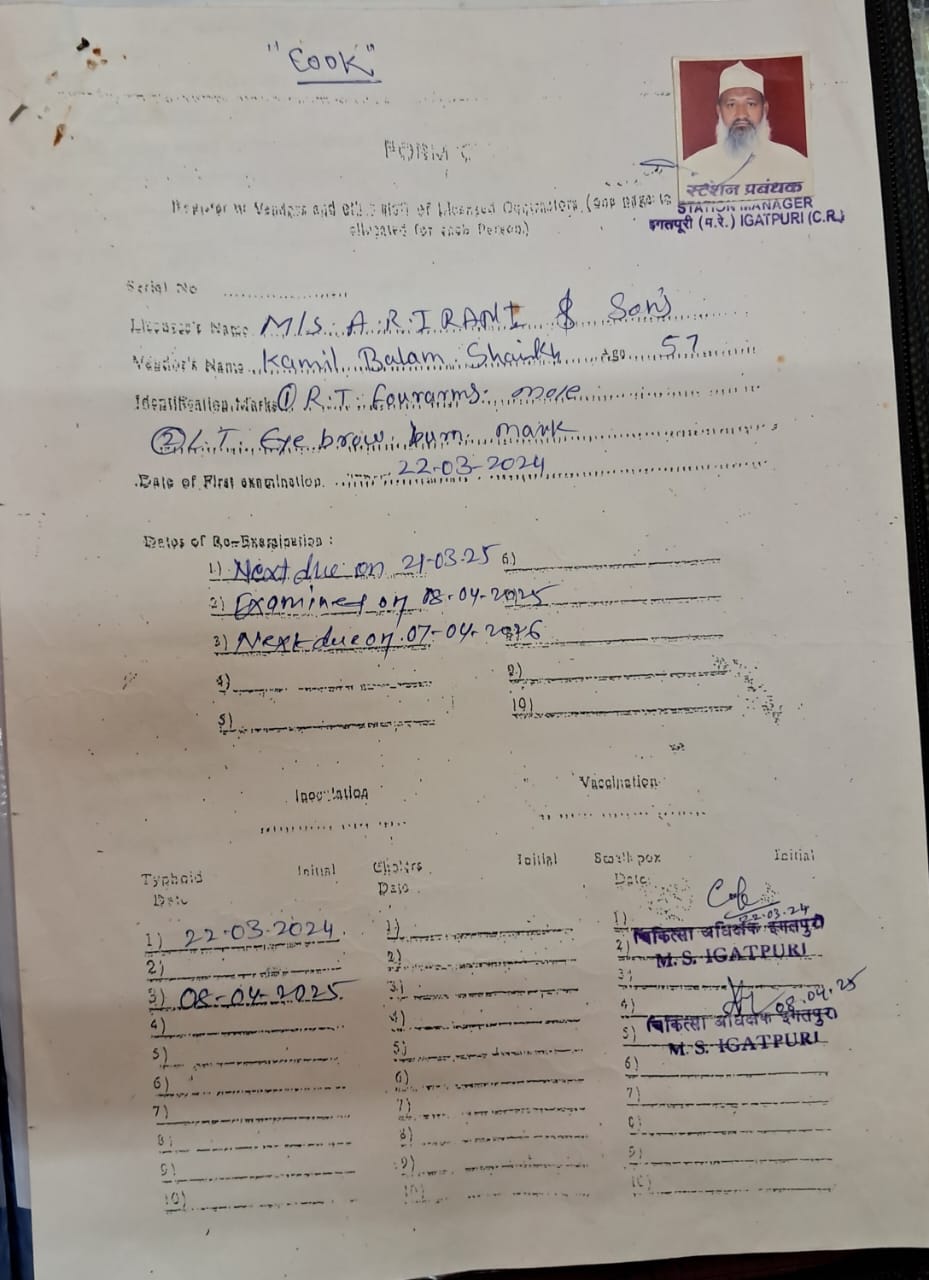 "COOK"
FORM C
Register of Vendors and of Licensed Contractors. (one page is
allocated for each Person.)
स्टेशन प्रबंधक
STATION MANAGER
इगतपूरी (म.रे.) IGATPURI (C.R.)
Serial No ....................
Licensee's Name M/S. A. R. IRANI & Son's
Vendor's Name Kamil Balam Shaikh Age 57
Identification Marks ① R.T. Fourarms. mole
② L.T. Eye brow burn mark
Date of First examination. 22-03-2024
Dates of Re-Examination :
1) Next due on 21-03-25 6)
2) Examined on 08-04-2025
3) Next due on 07-04-2026
4) 9.)
5) 10)
Inoculation Vaccination
Typhoid Initial Cholera Initial Small pox Initial
Date Date Date
1) 22-03-2024 1) 1) 22-03-24
चिकित्सा अधिक्षक इगतपुरी
2) 2) 2) M. S. IGATPURI
3) 08-04-2025. 3) 3)
4) 4) 4) 08.04.25
चिकित्सा अधिक्षक इगतपुरी
5) 5) 5) M. S. IGATPURI
6) 6) 6)
7) 7) 7)
8) 8) 8)
9) 9) 9)
10) 10) 10)